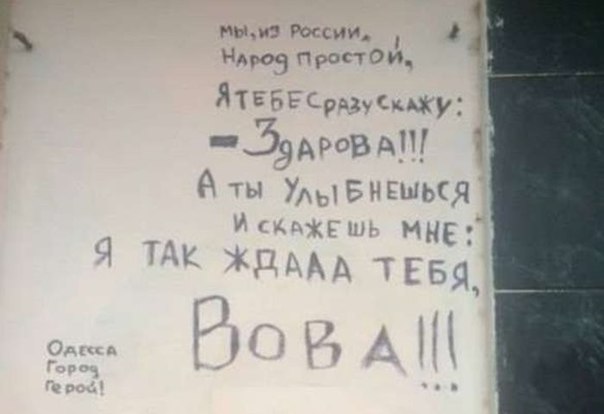 мы, из России,
Народ простой,
Я тебе сразу скажу:
- Здарова!!!
А ты улыбнешься
И скажешь мне:
Я ТАК ЖДАЛА ТЕБЯ,
ВОВА!!!
Одесса
Город
Герой!